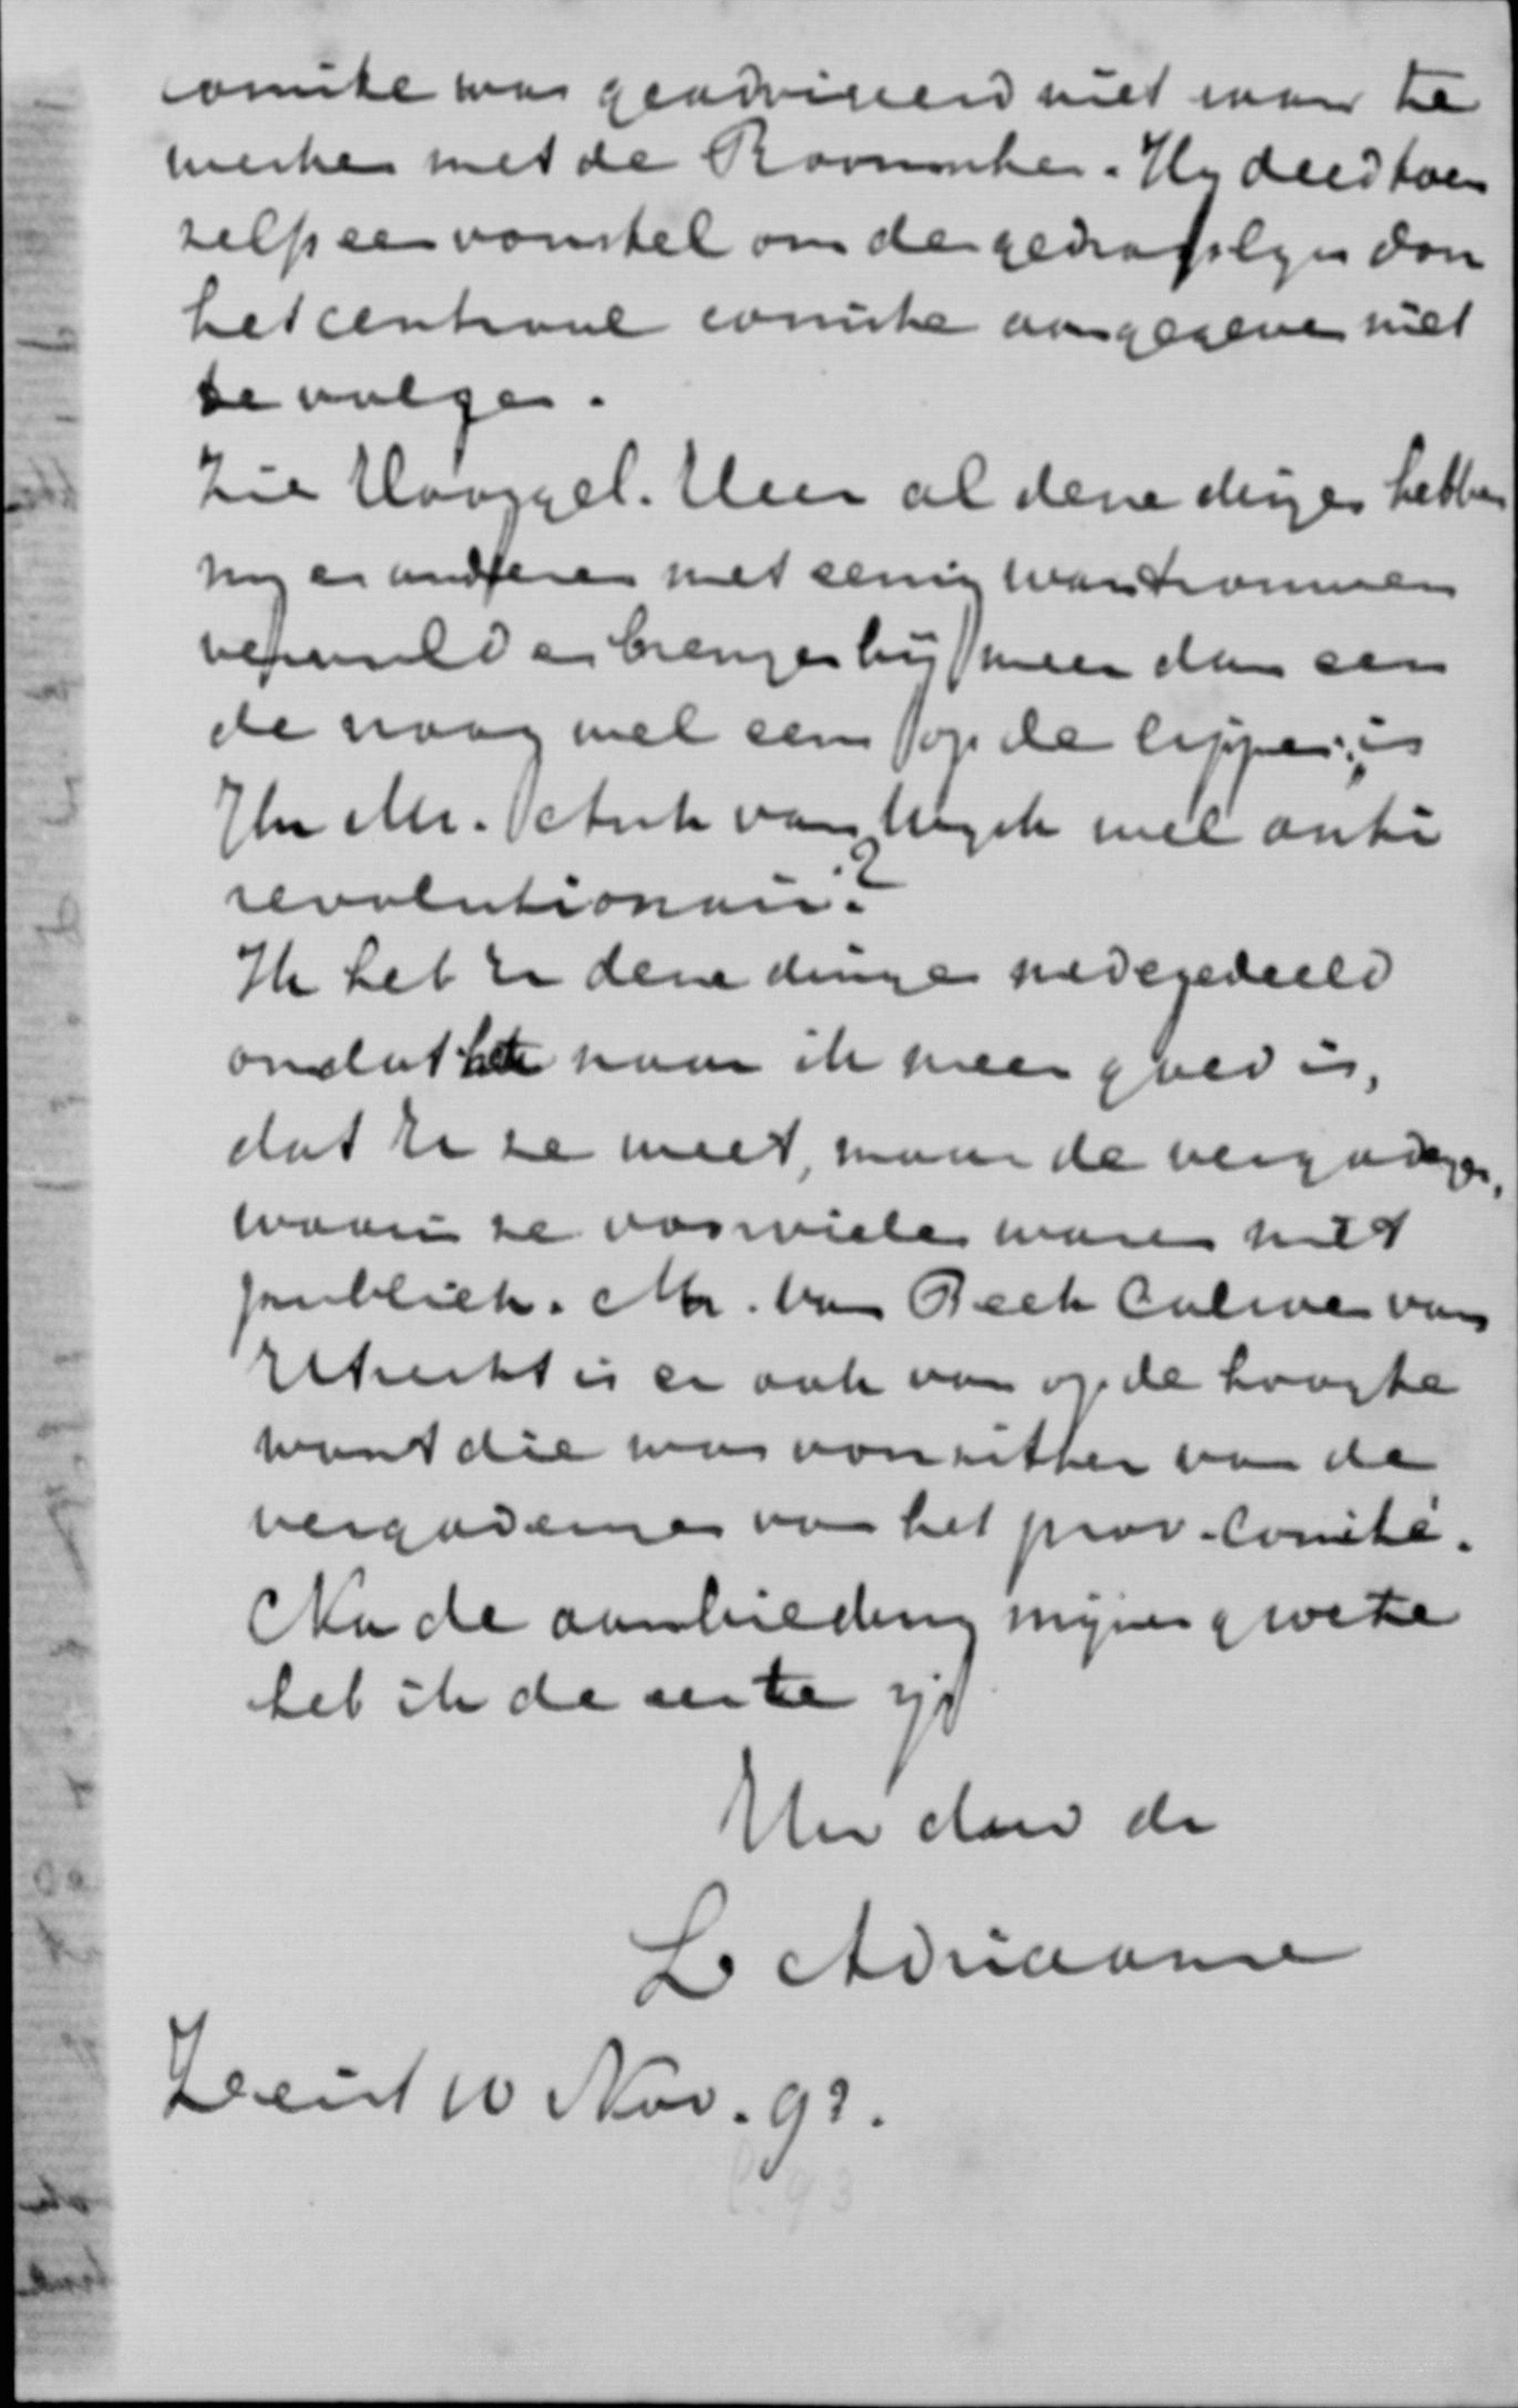 comite was geadviseerd niet saam te
werken met de Roomschen. Hy deed toen
zelfs een voorstel om de gedragslyn door
het centraal comite aangegeven niet
te volgen.
Zie Hooggel. Heer al deze dingen hebben
my en anderen met eenig wantrouwen
vervuld en brengen bij meer dan een
de vraag wel eens op de lippen: is
Jhr Mr. van Wyck wel anti
revolutionair?
Ik heb U deze dingen medegedeeld
omdat het naar ik meen goed is,
dat U ze weet, maar de vergadergn,
waarin ze voorvielen waren niet
publiek. Mr. van Beek Calkoen van
Utrecht is er ook van op de hoogte
want die was voorzitter van de
vergaderingen van het prov. Comité.
Na de aanbieding mijner groete
heb ik de eer te zijn
Uw dw dr
L Adriaanse
Zeist 10 Nov. 93.